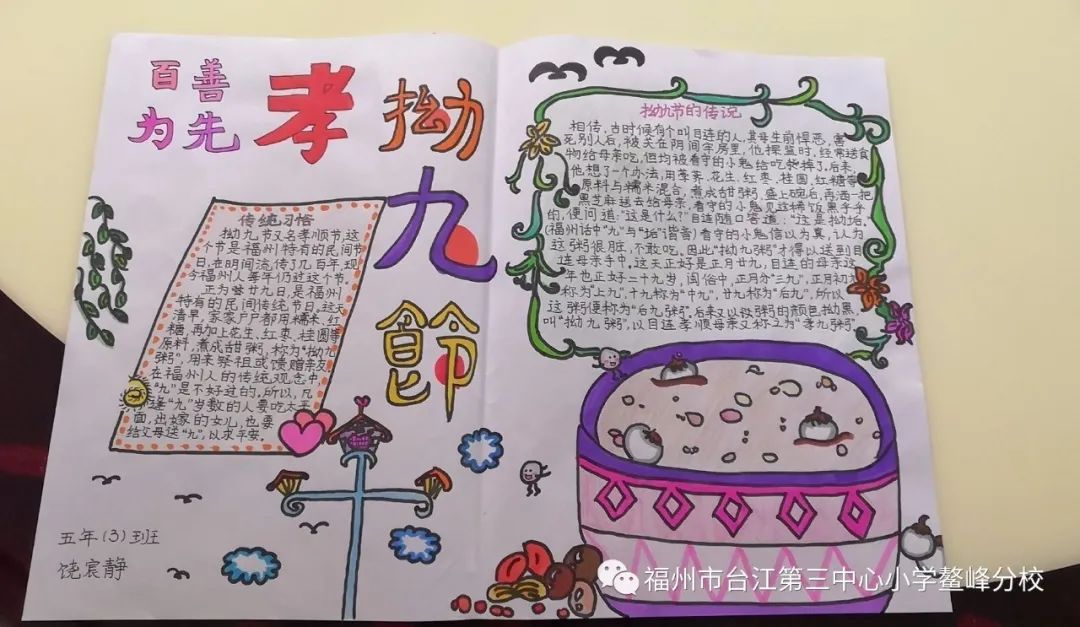 百善
为先
孝
拗九節
传统习俗
拗九节又名孝顺节,这
个节是福州特有的民间节
日,在民间流传了几百年,现
今福州人每年仍过这个节。
正月廿九日,是福州
特有的民间传统节日。这天
清早,家家户户都用糯米,红
糖,再加上花生、红枣、桂圆等
原料,煮成甜粥,称为“拗九
粥”,用来祭祖或馈赠亲友
在福州人的传统观念中,
“九”是不好过的。所以,凡
逢“九”岁数的人要吃太平
面,出嫁的女儿,也要
给父母送“九”,以求平安。
五年(3)班
饶宸静
拗九节的传说
相传,古时候有个叫目连的人,其母生前悍恶,害
死别人后,被关在阴间牢房里,他探监时,经常送食
物给母亲吃,但均被看守的小鬼给吃掉了,后来,
他想了一个办法,用荸荠、花生、红枣、桂圆、红糖等
原料与糯米混合,煮成甜粥,盛上碗后,再洒一把
黑芝麻送去给母亲,看守的小鬼见这稀饭黑乎乎
的,便问道:“这是什么?”目连随口答道:“这是拗垢,
(福州话中“九”与“垢”谐音)看守的小鬼信以为真,认为
这粥很脏,不敢吃。因此“拗九粥”才得以送到目
连母亲手中,这天正好是正月廿九,目连的母亲这
年也正好二十九岁,闽俗中,正月分“三九”,正月初九
称为“上九”,十九称为“中九”,廿九称为“后九”,所以
这粥便称为“后九粥”。后来又以粥的颜色拗黑
叫“拗九粥”,以目连孝顺母亲又称之为“孝九粥”
福州市台江第三中心小学鳌峰分校